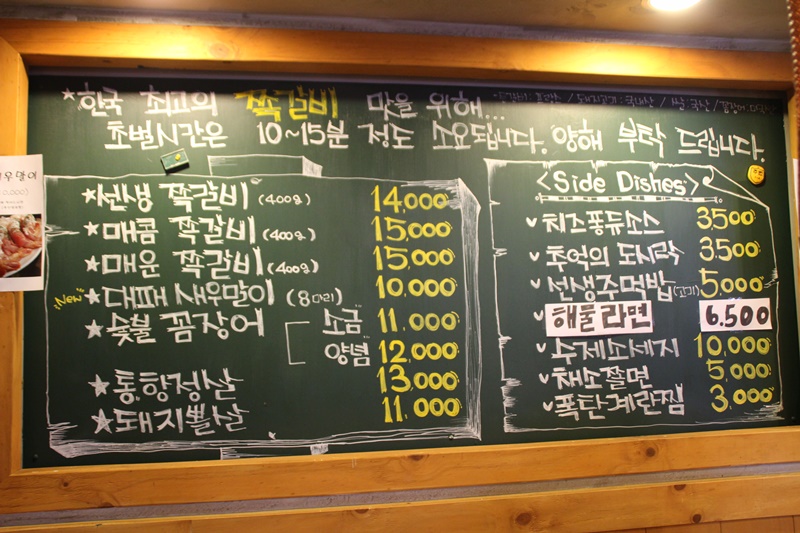 ★한국 최고의 쪽갈비 맛을 위해...
초벌시간은 10~15분 정도 소요됩니다. 양해 부탁 드립니다.
★선생 쪽갈비 (400g) 14,000
★매콤 쪽갈비 (400g) 15,000
★매운 쪽갈비 (400g) 15,000
New ★대패 새우말이 (8마리) 10,000
★숯불 꼼장어 소금 11,000
양념 12,000
★통항정살 13,000
★돼지뽈살 11,000
<Side Dishes>
✓치즈퐁듀소스 3,500
✓추억의 도시락 3,500
✓선생주먹밥(고기) 5,000
✓해물라면 6,500
✓수제소세지 10,000
✓채소쫄면 5,000
✓폭탄계란찜 3,000